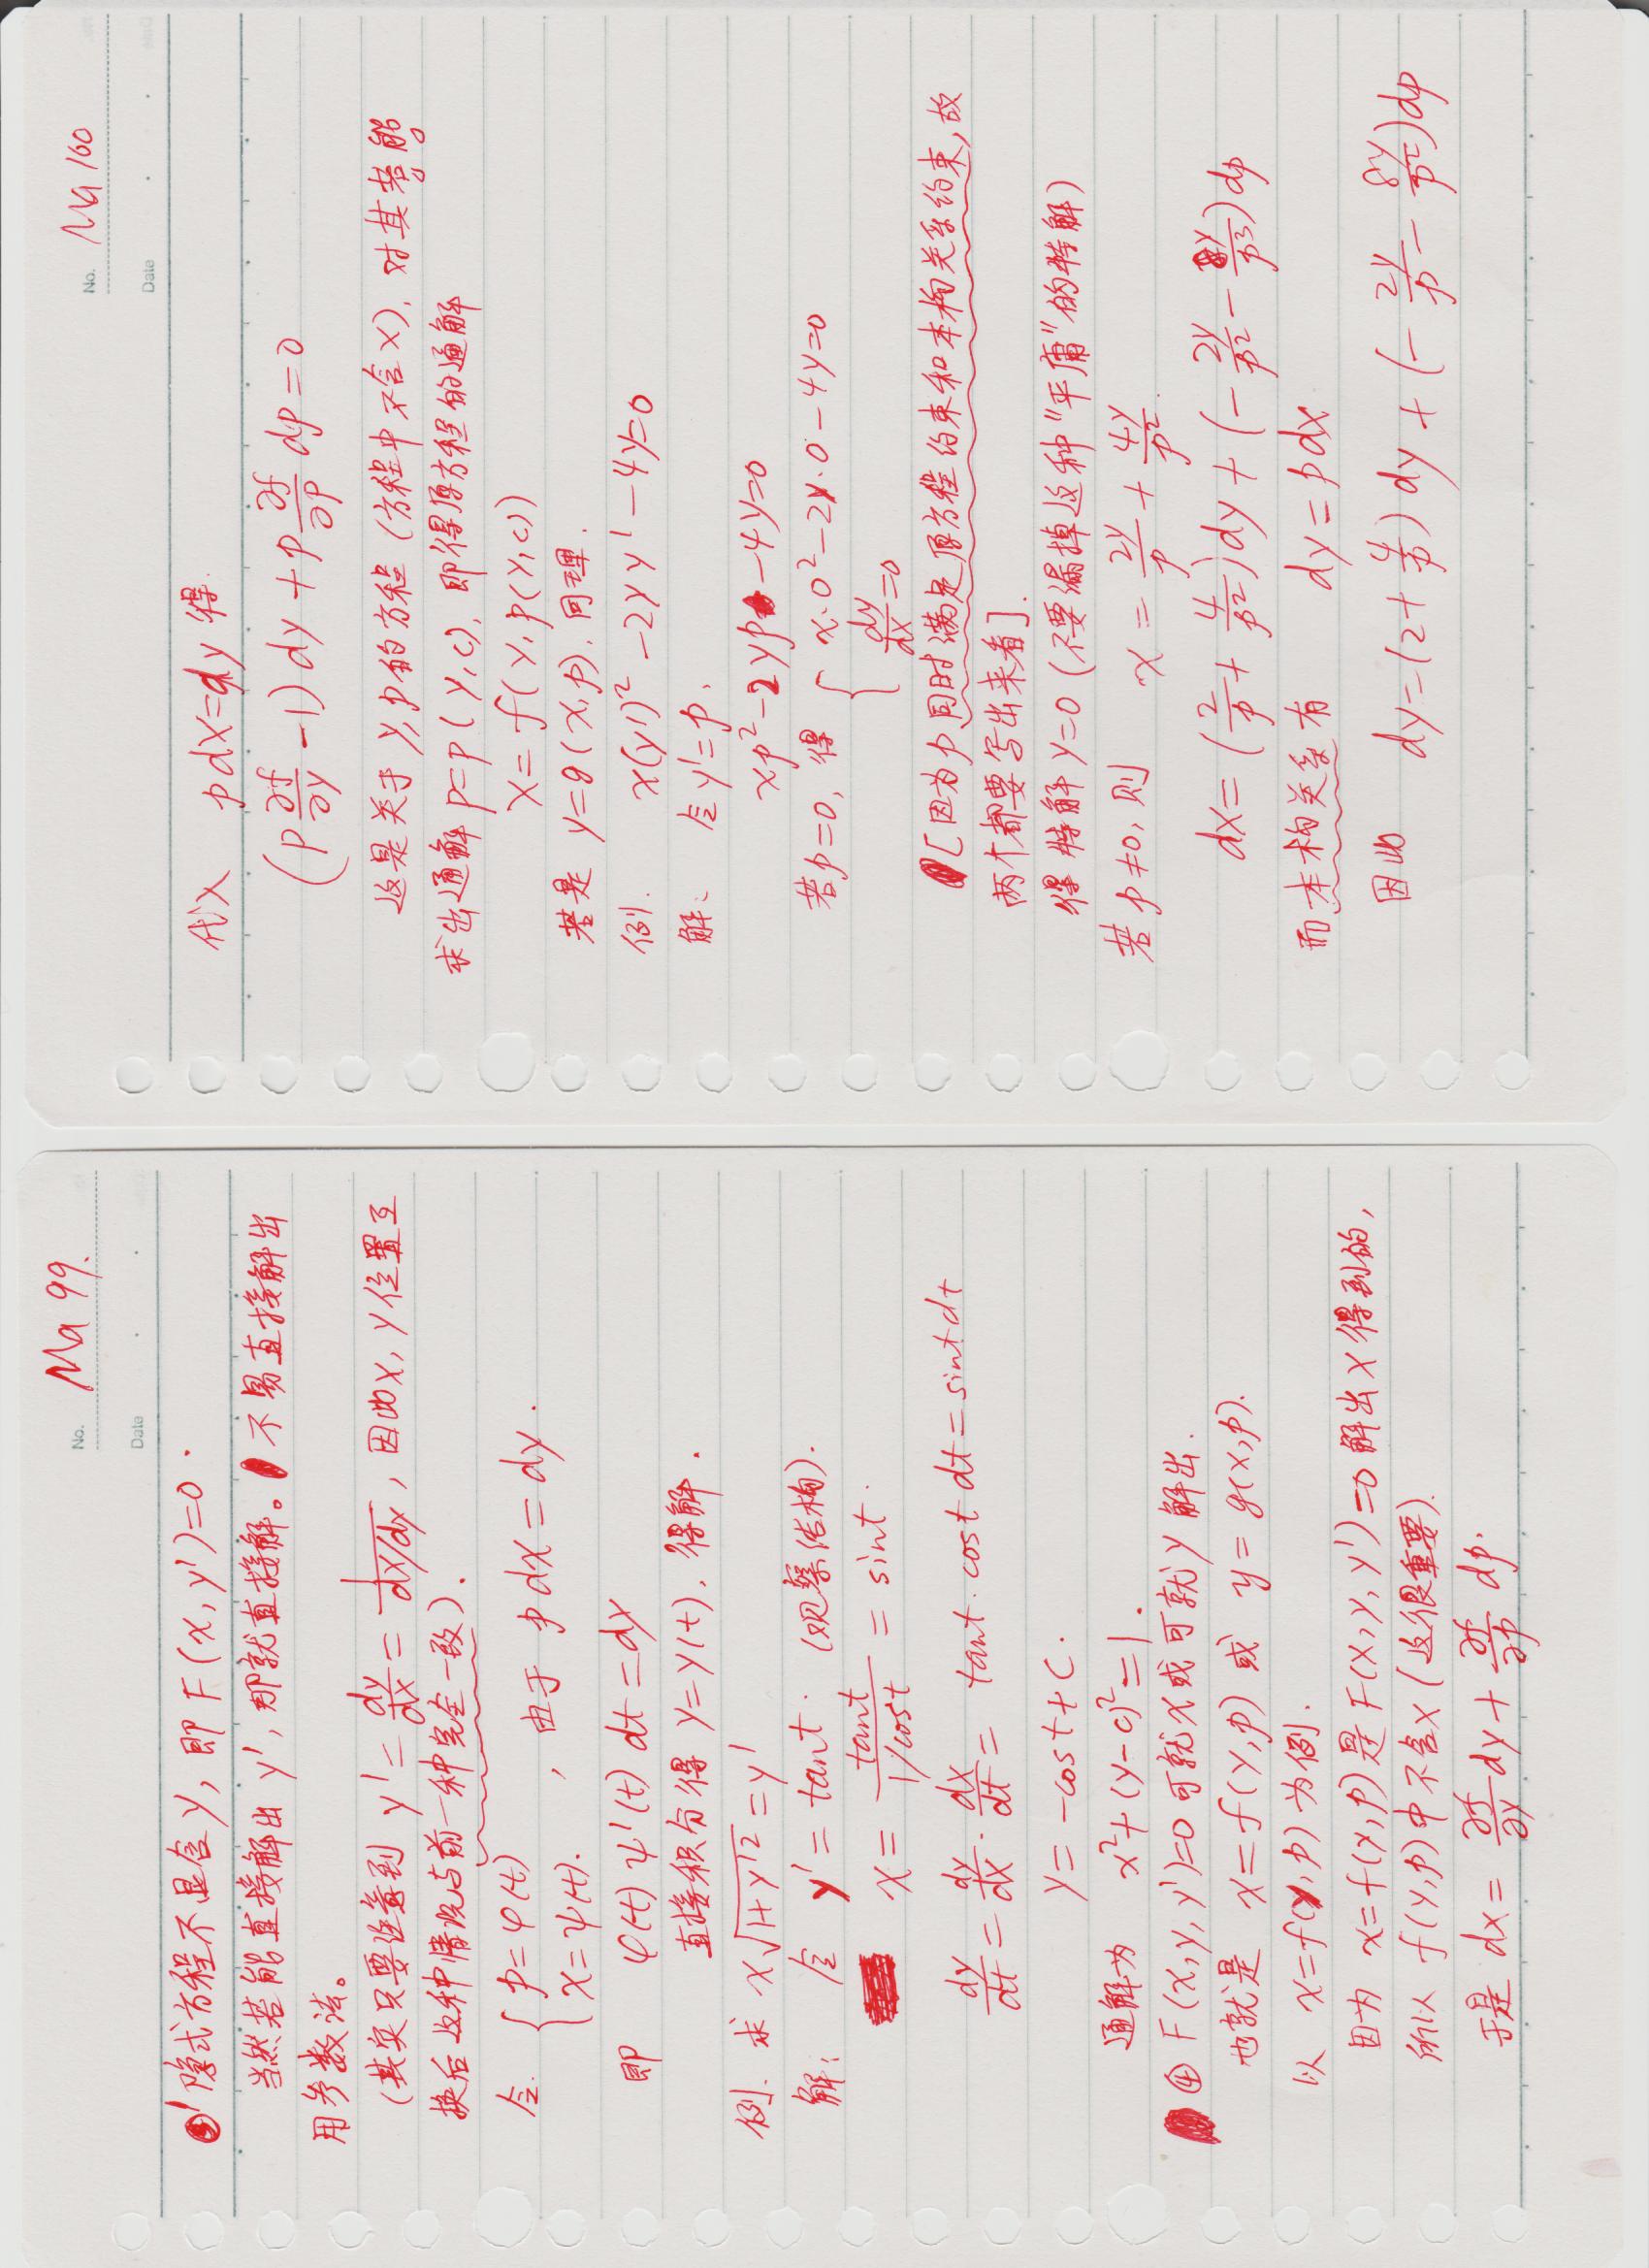 No. Ma 99.
Date
③' 隐式方程不显含y, 即 F(x, y')=0.
当然若能直接解出 y', 那就直接解。不易直接解出
用参数法。
(其实只要注意到 y' = dy/dx = 1/(dx/dy), 因此x, y位置互
换后这种情况与前一种完全一致).
令. { p=φ(t)
x=ψ(t). , 由于 p dx = dy.
即 φ(t) ψ'(t) dt = dy
直接积分得 y=y(t), 得解.
例. 求 x√(1+y'²) = y'
解: 令 y' = tant. (观察结构).
x = tant/(1/cost) = sint.
dy/dt = dy/dx · dx/dt = tant · cost dt = sint dt
y = -cost + C.
通解为 x²+(y-c)²=1.
④ F(x, y, y')=0 可就x或可就y 解出.
也就是 x=f(y,p) 或 y=g(x,p).
以 x=f(y,p) 为例.
因为 x=f(y,p) 是 F(x, y, y')=0 解出x得到的,
所以 f(y,p)中不含x (这很重要).
于是 dx = ∂f/∂y dy + ∂f/∂p dp.
No. Ma 100
Date
代入 p dx=dy 得.
(p ∂f/∂y -1) dy + p ∂f/∂p dp = 0
这是关于y,p的方程 (方程中不含x), 对其若能
求出通解 p=p(y,c), 即得原方程的通解
x = f(y, p(y,c))
若是 y=g(x,p), 同理.
例. x(y')² -2yy' -4y=0
解: 令y'=p,
xp²-2yp -4y=0
若p=0, 得 { x·0²-2y·0-4y=0
dy/dx=0
[因为p同时满足原方程约束和本构关系约束, 故
两个都要写出来看].
得特解 y=0 (不要漏掉这种"平庸"的特解)
若p≠0, 则 x = 2y/p + 4y/p².
dx = (2/p + 4/p²)dy + (- 2y/p² - 8y/p³)dp
而本构关系有 dy = p dx
因此 dy = (2+ 4/p) dy + (- 2y/p - 8y/p²)dp